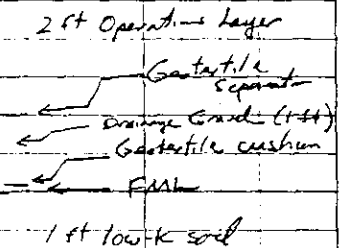 2 ft Operations Layer
Geotextile
Separator
Drainage Gravel (1-ft)
Geotextile cushion
FML
1 ft low-k soil